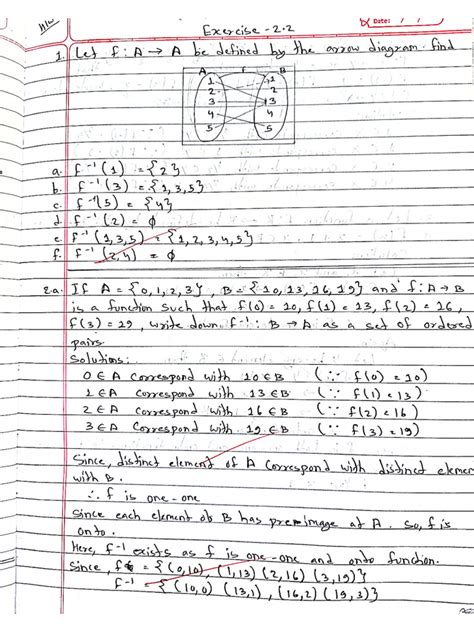 H/W
Date: / /
Exercise - 2.2
1. Let f : A → A be defined by the arrow diagram. find
A f B
1 1
2 2
3 3
4 4
5 5
a. f⁻¹(1) = {2}
b. f⁻¹(3) = {1,3,5}
c. f⁻¹(5) = {4}
d. f⁻¹(2) = ϕ
e. f⁻¹(1,3,5) = {1,2,3,4,5}
f. f⁻¹(2,4) = ϕ
2.a. If A = {0,1,2,3}, B = {10,13,16,19} and f: A → B
is a function such that f(0) = 10, f(1) = 13, f(2) = 16,
f(3) = 19, write down f⁻¹: B → A as a set of ordered
pairs.
Solution:
0 ∈ A correspond with 10 ∈ B (∵ f(0) = 10)
1 ∈ A correspond with 13 ∈ B (∵ f(1) = 13)
2 ∈ A correspond with 16 ∈ B (∵ f(2) = 16)
3 ∈ A correspond with 19 ∈ B (∵ f(3) = 19)
Since, distinct element of A correspond with distinct element
with B.
∴ f is one-one
Since each element of B has preimage at A. So, f is
onto.
Here, f⁻¹ exists as f is one-one and onto function.
Since, f = {(0,10), (1,13) (2,16) (3,19)}
f⁻¹ = {(10,0) (13,1), (16,2) (19,3)}